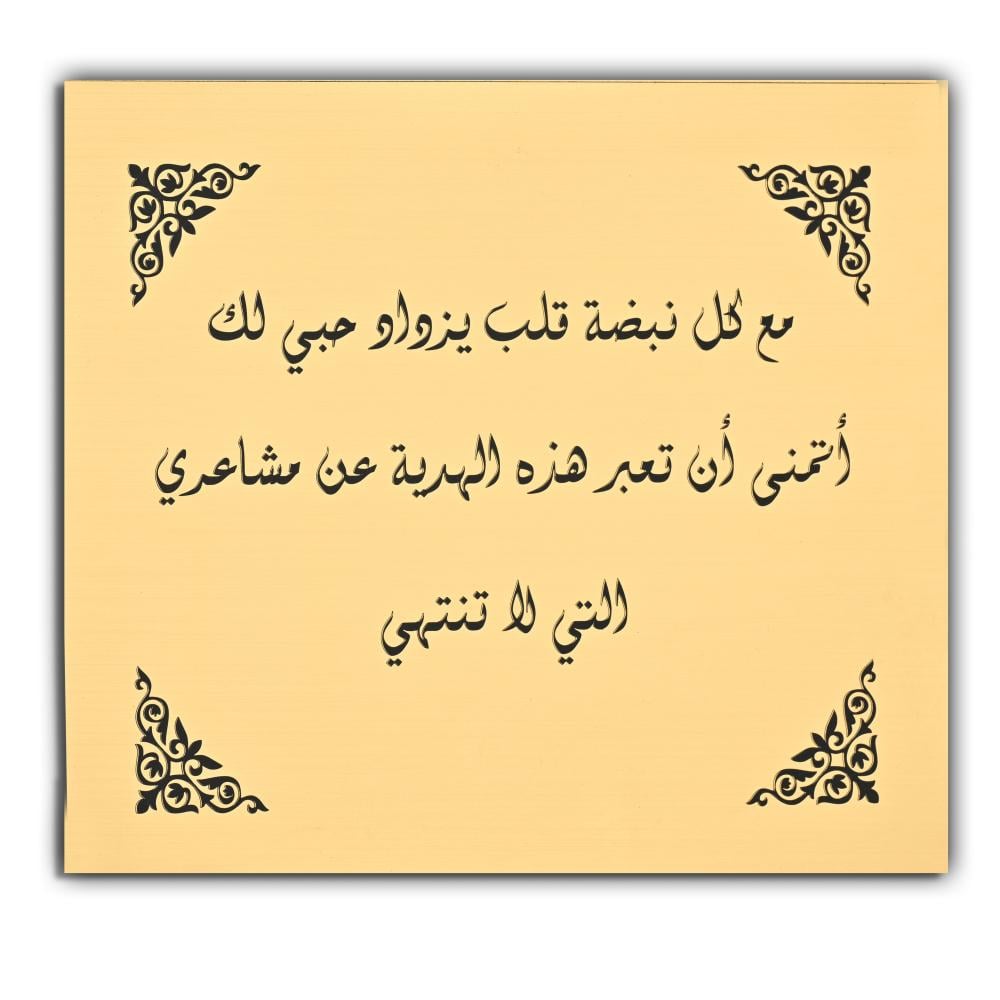 مع كل نبضة قلب يزداد حبي لك
أتمنى أن تعبر هذه الهدية عن مشاعري
التي لا تنتهي